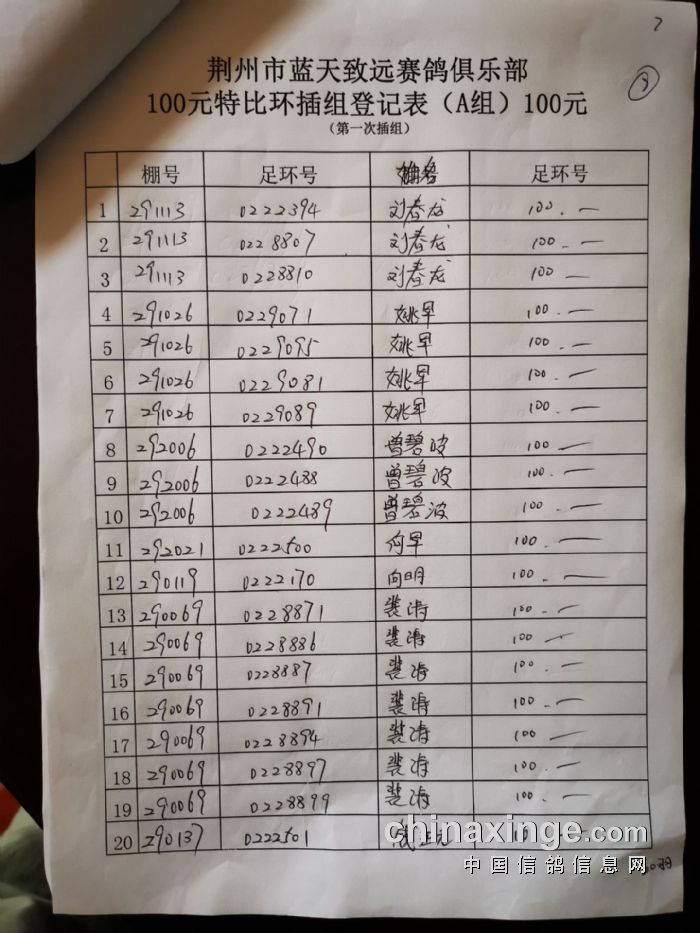 7
荆州市蓝天致远赛鸽俱乐部
100元特比环插组登记表（A组）100元
（第一次插组）
棚号 足环号 足环号
1 291113 0222394 刘春龙 100.—
2 291113 0228807 刘春龙 100.—
3 291113 0228810 刘春龙 100 —
4 291026 0229071 姚早 100.—
5 291026 0229095 姚早 100.—
6 291026 0229081 姚早 100.—
7 291026 0229089 姚早 100.—
8 292006 0222490 曾碧波 100 —
9 292006 0222488 曾碧波 100.—
10 292006 0222489 曾碧波 100.—
11 292021 0222500 早 100.—
12 290119 0222170 向明 100.—
13 290069 0228871 裴涛 100.—
14 290069 0228886 裴涛 100 —
15 290069 0228887 裴涛 100.—
16 290069 0228891 裴涛 100 —
17 290069 0228894 裴涛 100 —
18 290069 0228897 裴涛 100.—
19 290069 0228899 裴涛 100.—
20 290137 0222501
chinaxinge.com
中国信鸽信息网